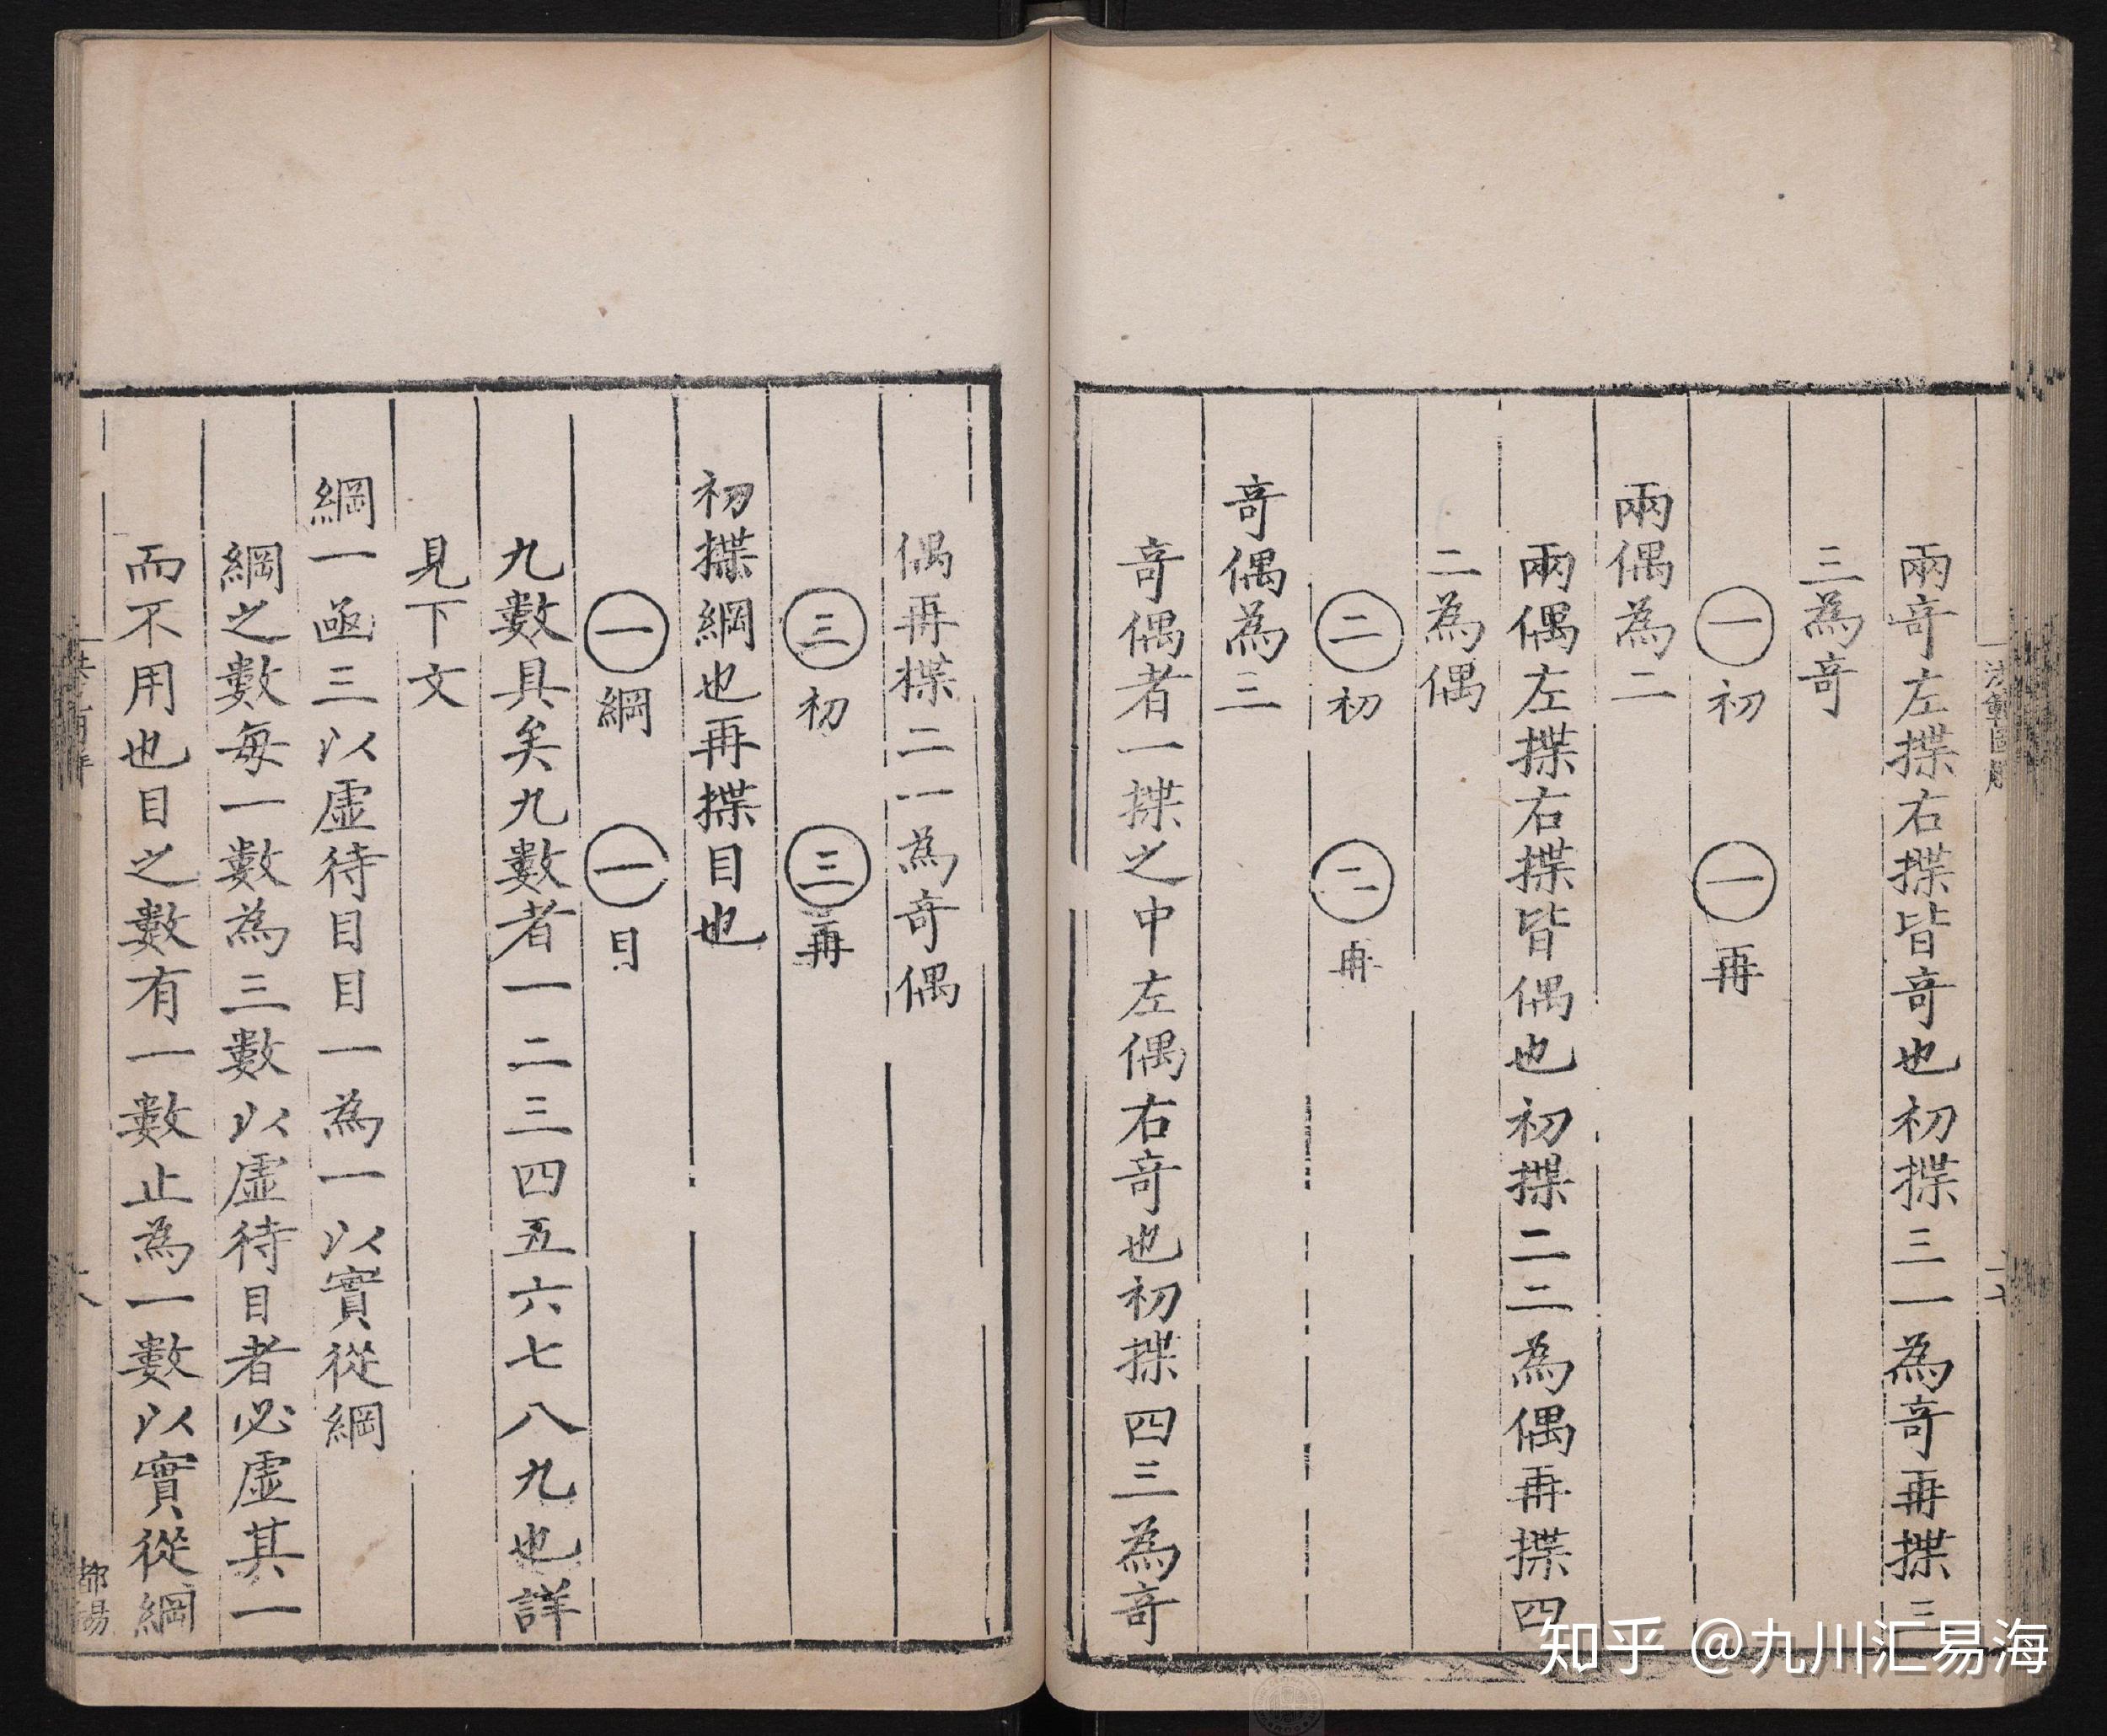 兩奇左揲右揲皆奇也初揲三一為奇再揲三
三為奇
㊀初 ㊀再
兩偶為二
兩偶左揲右揲皆偶也初揲二二為偶再揲四
二為偶
㊁初 ㊁再
奇偶為三
奇偶者一揲之中左偶右奇也初揲四三為奇
偶再揲二一為奇偶
㊂初 ㊂再
初揲綱也再揲目也
㊀綱 ㊀目
九數具矣九數者一二三四五六七八九也詳
見下文
綱一函三以虛待目目一為一以實從綱
綱之數每一數為三數以虛待目者必虛其一
而不用也目之數有一數止為一數以實從綱
知乎 @九川汇易海